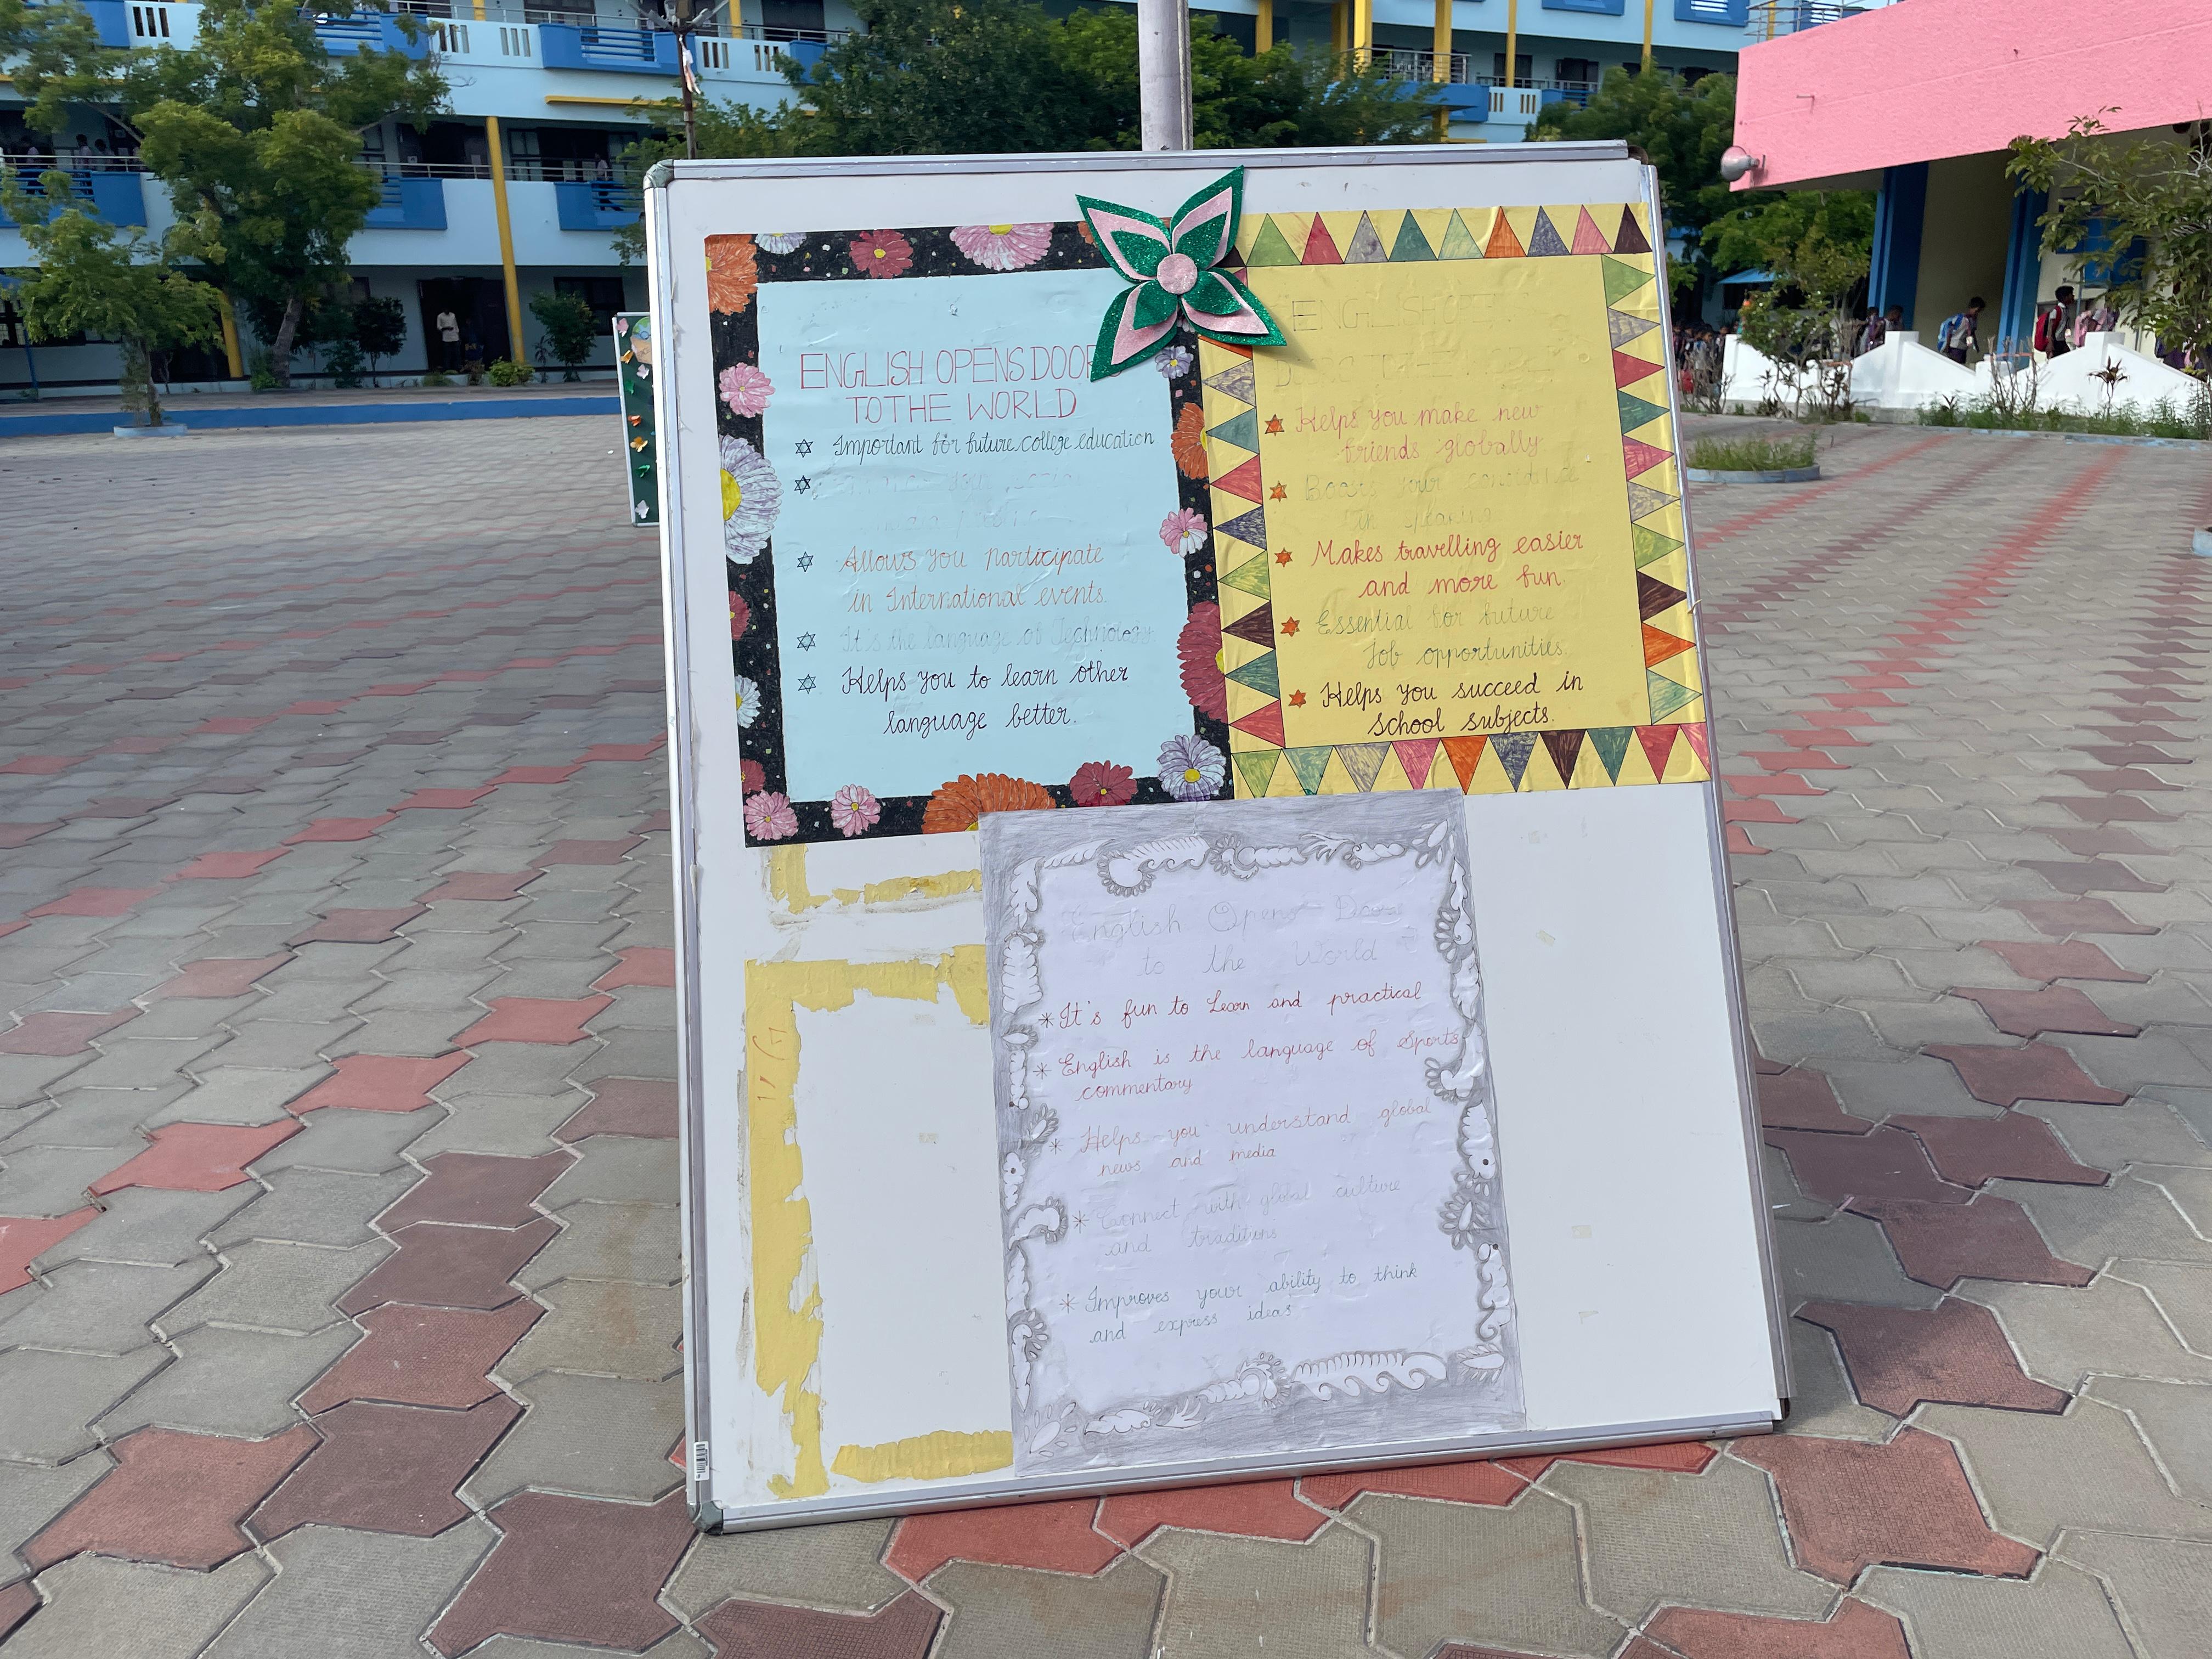 ENGLISH OPENS DOORS
TO THE WORLD
Important for future college education
Allows you participate
in International events.
It's the language of Technology
Helps you to learn other
language better.
ENGLISH OPENS
Helps you make new
friends globally.
Boosts your confidence
in
Makes travelling easier
and more fun.
Essential for future
Job opportunities.
Helps you succeed in
School subjects.
English Opens Doors
to the World
* It's fun to Learn and practical
* English is the language of Sports
commentary
* Helps you understand global
news and media
* Connect with global culture
and traditions
* Improves your ability to think
and express ideas